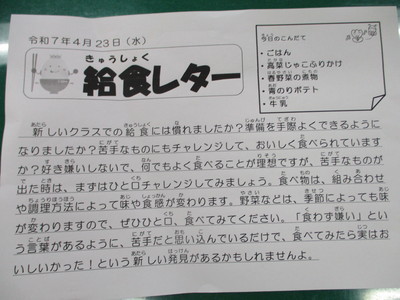 令和７年４月２３日（水）
きゅうしょく
給食レター
今日のこんだて
・ごはん
・高菜じゃこふりかけ
・春野菜の煮物
・青のりポテト
・牛乳
新しいクラスでの給食には慣れましたか？準備を手際よくできるように
なりましたか？苦手なものにもチャレンジして、おいしく食べられています
か？好き嫌いしないで、何でもよく食べることが理想ですが、苦手なものが
出た時は、まずはひと口チャレンジしてみましょう。食べ物は、組み合わせ
や調理方法によって味や食感が変わります。野菜などは、季節によっても味
が変わりますので、ぜひひと口、食べてみてください。「食わず嫌い」とい
う言葉があるように、苦手だと思い込んでいるだけで、食べてみたら実はお
いしいかった！という新しい発見があるかもしれませんよ。